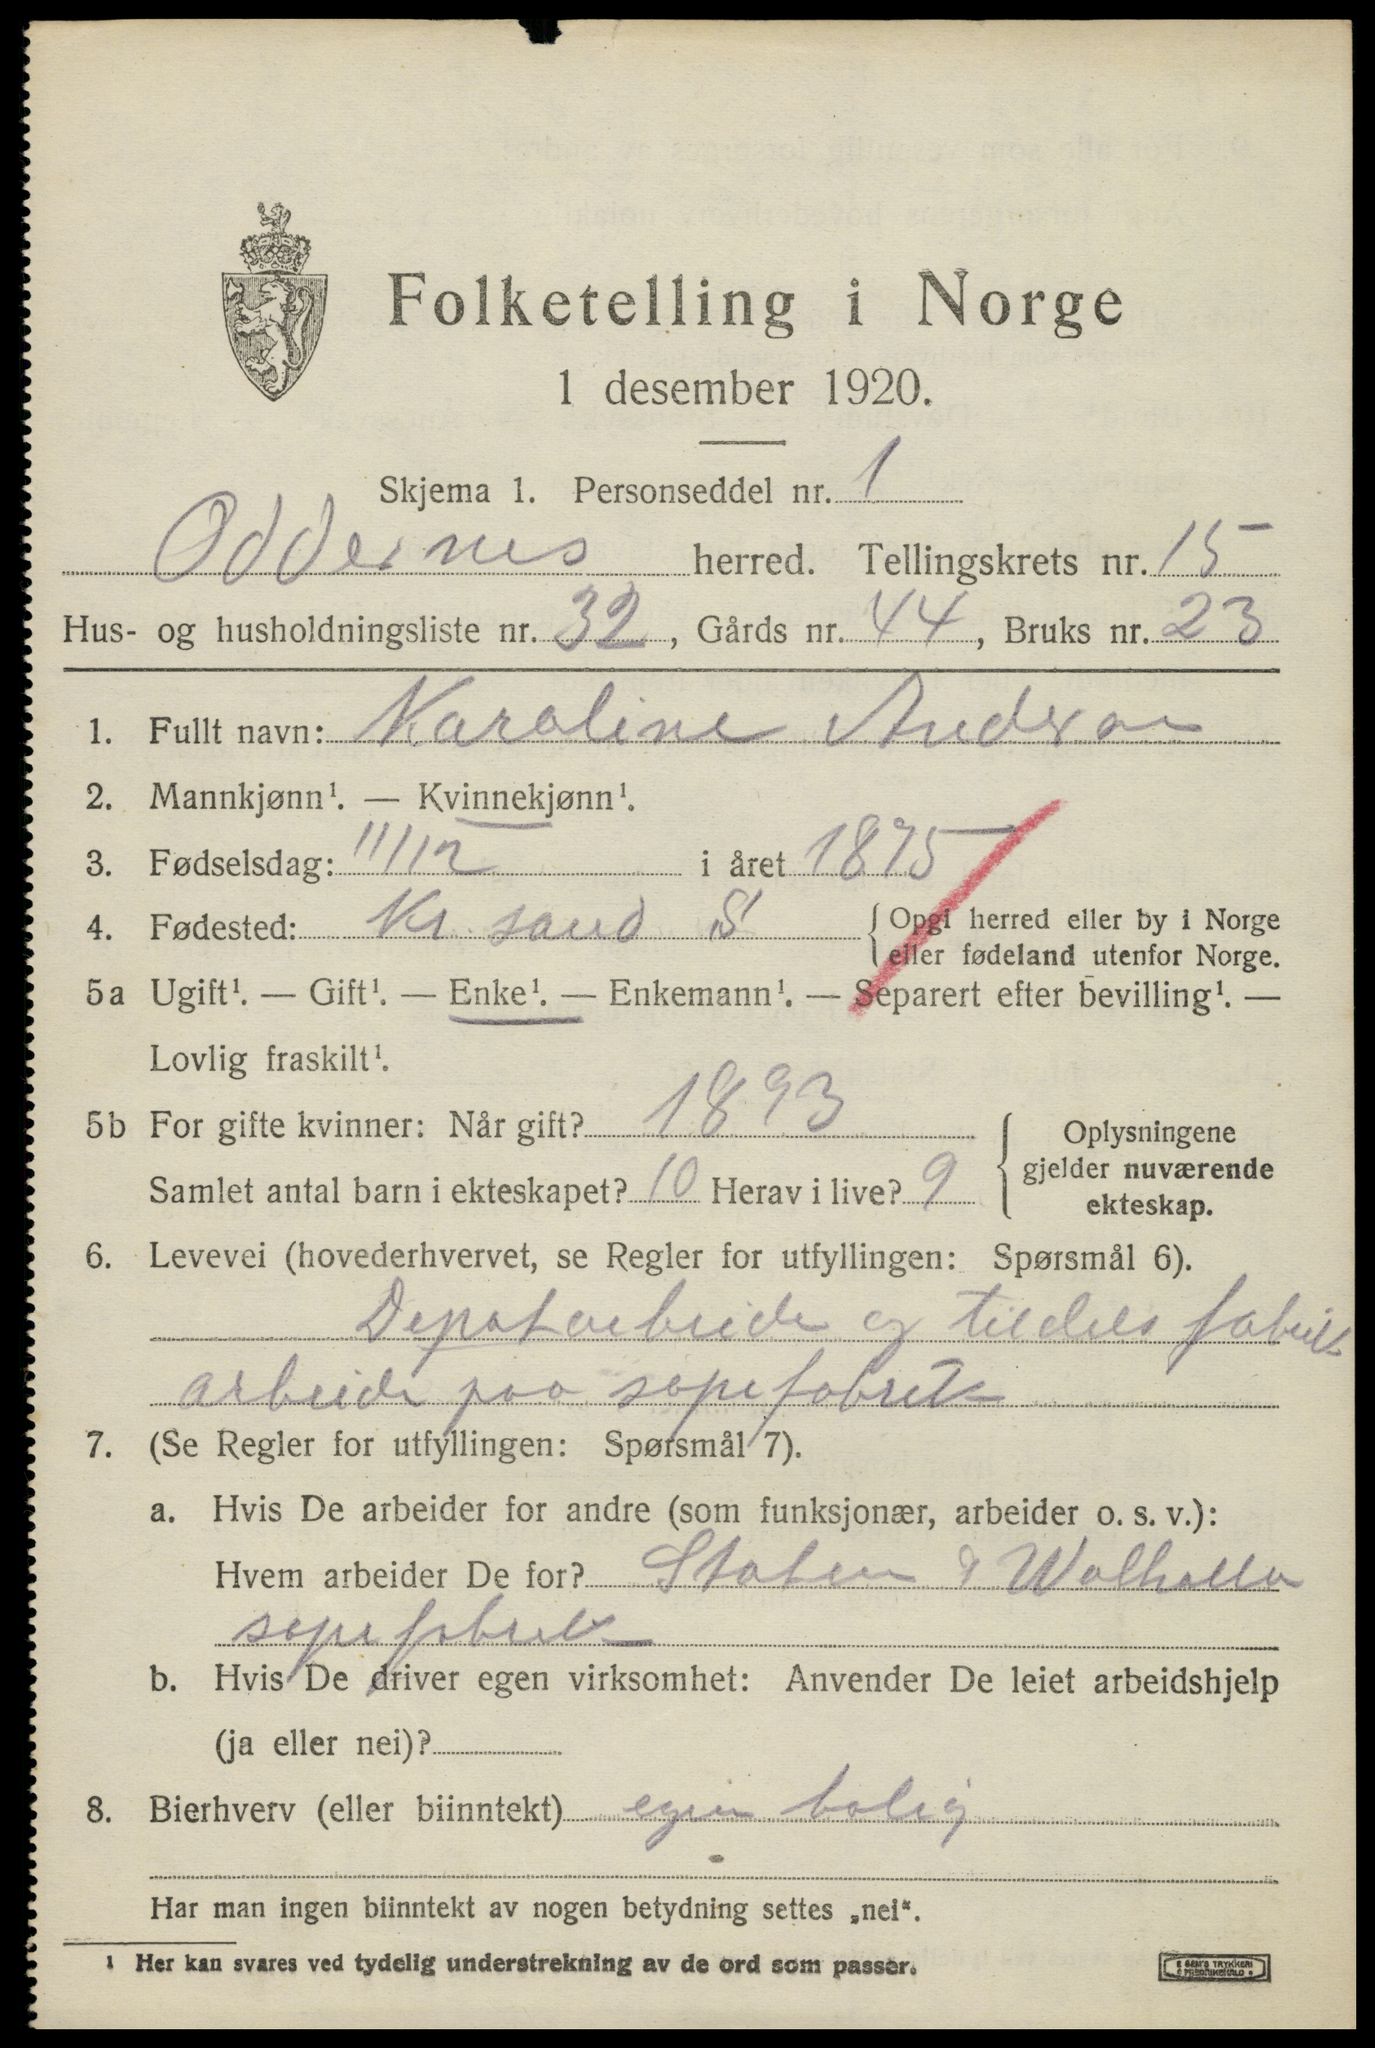 Folketelling i Norge
1 desember 1920.
Skjema 1. Personseddel nr. 1
Oddernes herred. Tellingskrets nr. 15
Hus- og husholdningsliste nr. 32, Gårds nr. 44, Bruks nr. 23
1. Fullt navn: Karoline
2. Mannkjønn¹. — Kvinnekjønn¹.
3. Fødselsdag: 11/12 i året 1875
4. Fødested: Kr sand S { Opgi herred eller by i Norge
eller fødeland utenfor Norge.
5a Ugift¹. — Gift¹. — Enke¹. — Enkemann¹. — Separert efter bevilling¹. —
Lovlig fraskilt¹.
5b For gifte kvinner: Når gift? 1893
Samlet antal barn i ekteskapet? 10 Herav i live? 9
{ Oplysningene
gjelder nuværende
ekteskap.
6. Levevei (hovederhvervet, se Regler for utfyllingen: Spørsmål 6).
Depotarbeide og tildels fabrik
arbeide paa sæpefabrik
7. (Se Regler for utfyllingen: Spørsmål 7).
a. Hvis De arbeider for andre (som funksjonær, arbeider o. s. v.):
Hvem arbeider De for? Staten & Walhalla
sæpefabrik
b. Hvis De driver egen virksomhet: Anvender De leiet arbeidshjelp
(ja eller nei)?
8. Bierhverv (eller biinntekt) egen bolig
Har man ingen biinntekt av nogen betydning settes „nei“.
1 Her kan svares ved tydelig understrekning av de ord som passer.
SEM'S TRYKKERI
FREDRIKSHALD